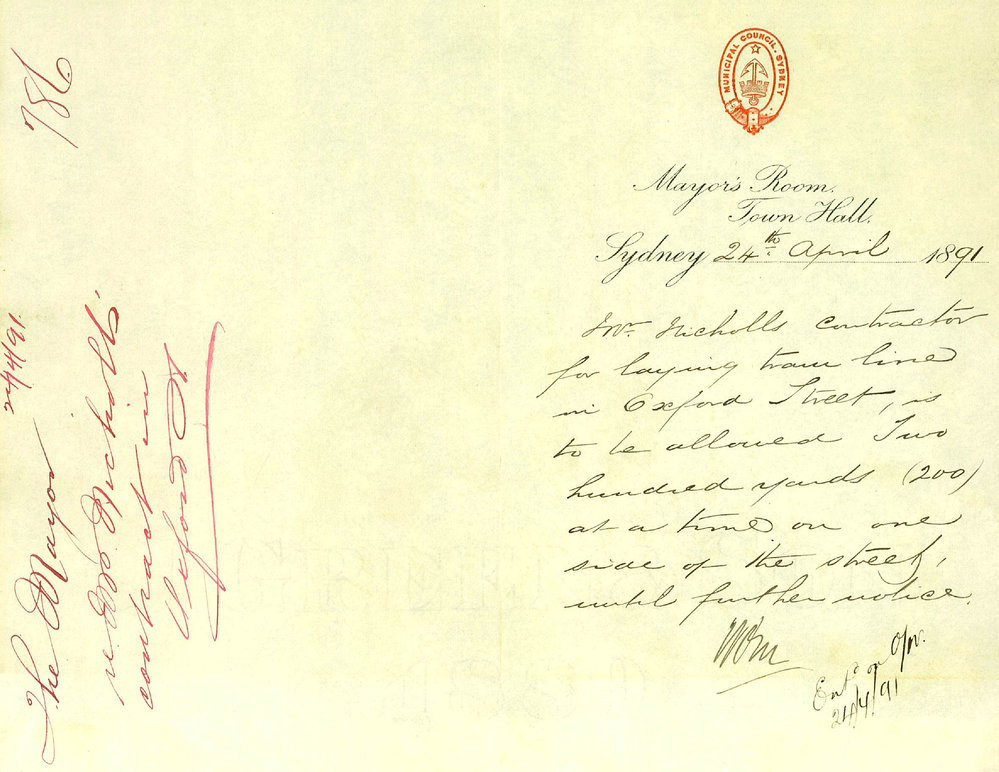 786
The Mayor 24/4/91
re Mr. Nicholls'
contract in
Oxford St.
MUNICIPAL COUNCIL. SYDNEY
Mayor's Room.
Town Hall.
Sydney 24th April 1891
Mr. Nicholls contractor
for laying tram line
in Oxford Street, is
to be allowed Two
hundred yards (200)
at a time on one
side of the street,
until further notice.
Entd on
24/4/91